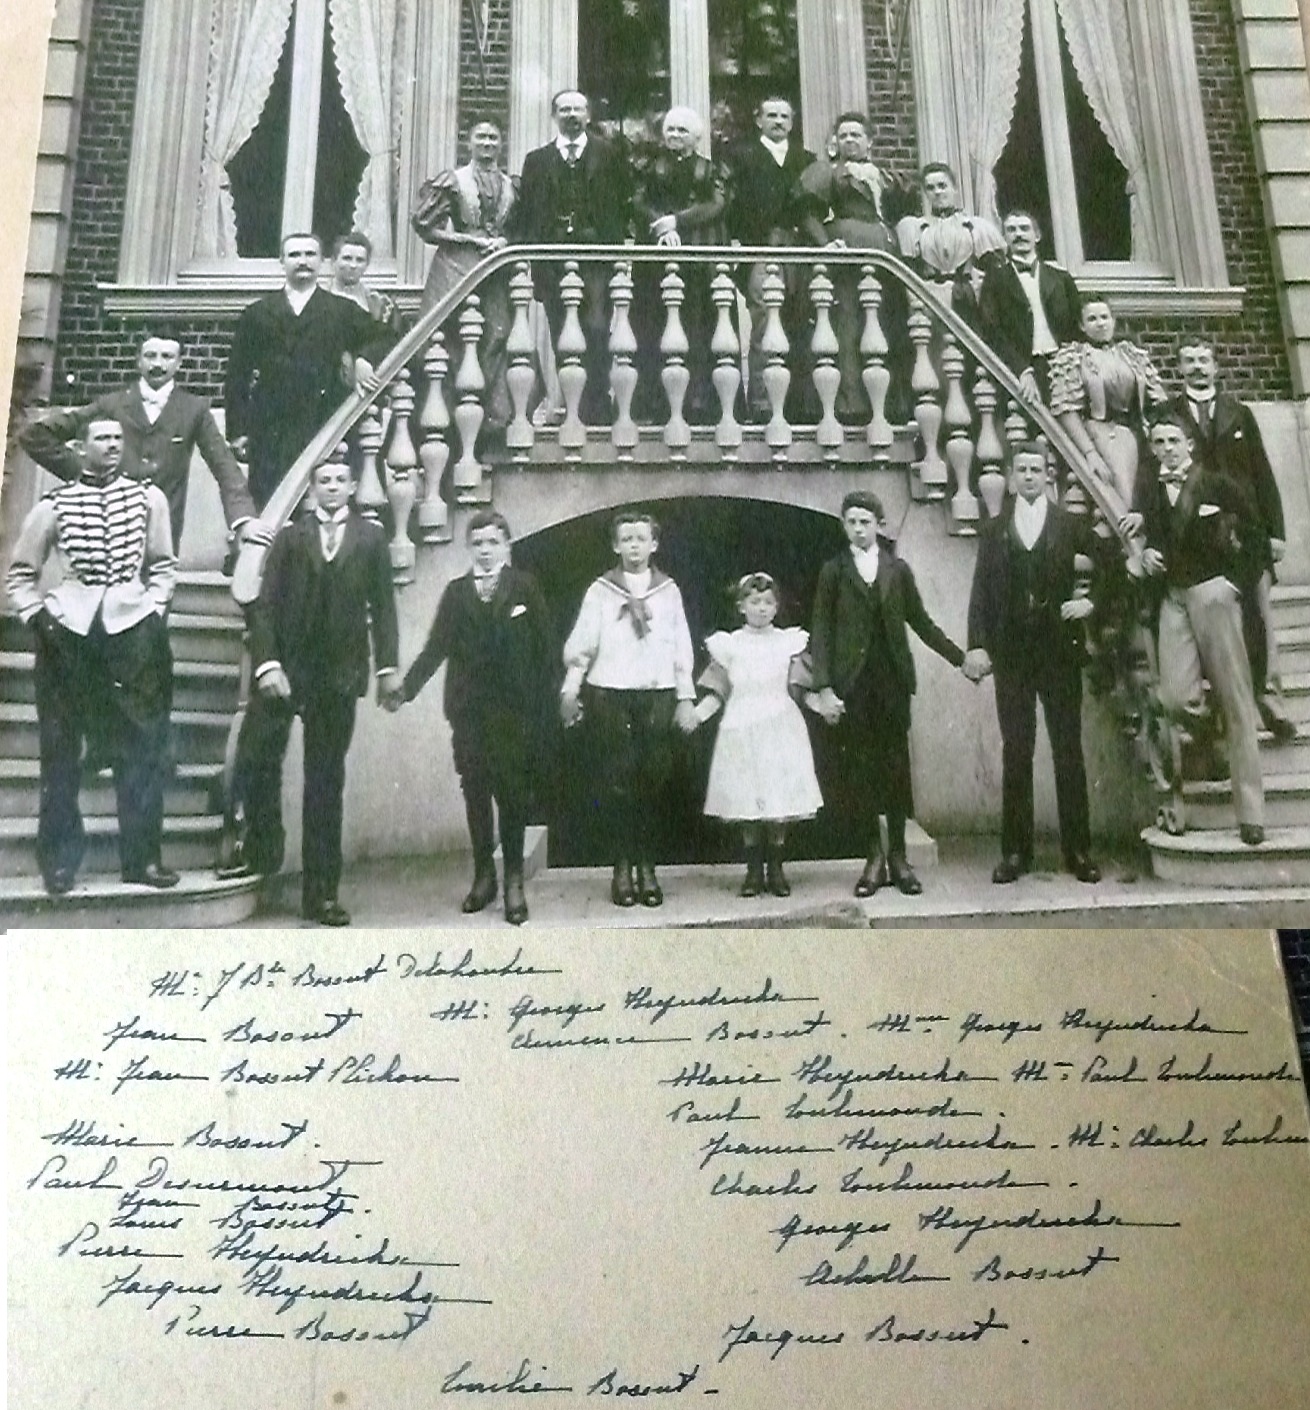 Mᵉ: J Bᵗᵉ Bossut Delahoutre
Mʳ: Georges Heyndrickx
Jean Bossut
Clemence Bossut. Mᵐᵉ Georges Heyndrickx
Mᵉ: Jean Bossut Plichon
Marie Heyndrickx Mᵐᵉ Paul Toulemonde
Paul Toulemonde.
Marie Bossut.
Jeanne Heyndrickx. Mᵉ: Charles
Paul Desurmont
Charles Toulemonde.
Jean Bossut.
Louis Bossut
Georges Heyndrickx
Pierre Heyndrickx
Achille Bossut
Jacques Heyndrickx
Pierre Bossut
Jacques Bossut.
Emilie Bossut -